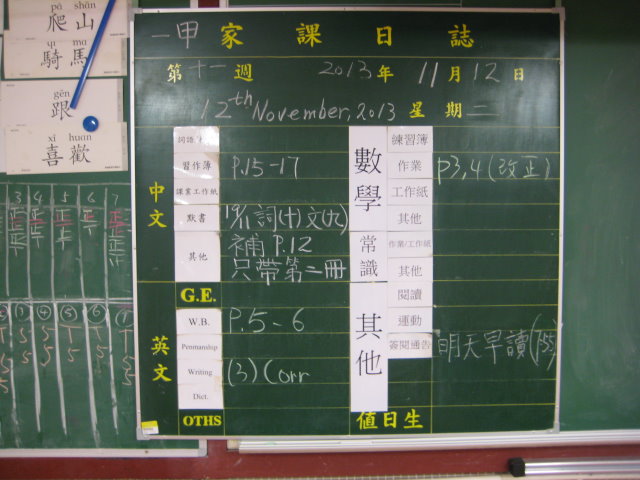 pá shān
爬山
qí mǎ
騎馬
gēn
跟
xǐ huān
喜歡
一甲家課日誌
第十一週 2013年 11月 12日
12th November, 2013 星期二
中文
習作簿 P.15-17
課堂工作紙
默書
其他 補 P.12
只帶第二冊
英文
G.E.
W.B. P.5-6
Penmanship
Writing (3) Corr
Dict.
OTHS
數學
練習簿
作業 p3,4 (改正)
工作紙
其他
常識
作業/工作紙
其他
其他
閱讀
運動
簽閱通告 明天早讀
值日生
3 4 5 6 7